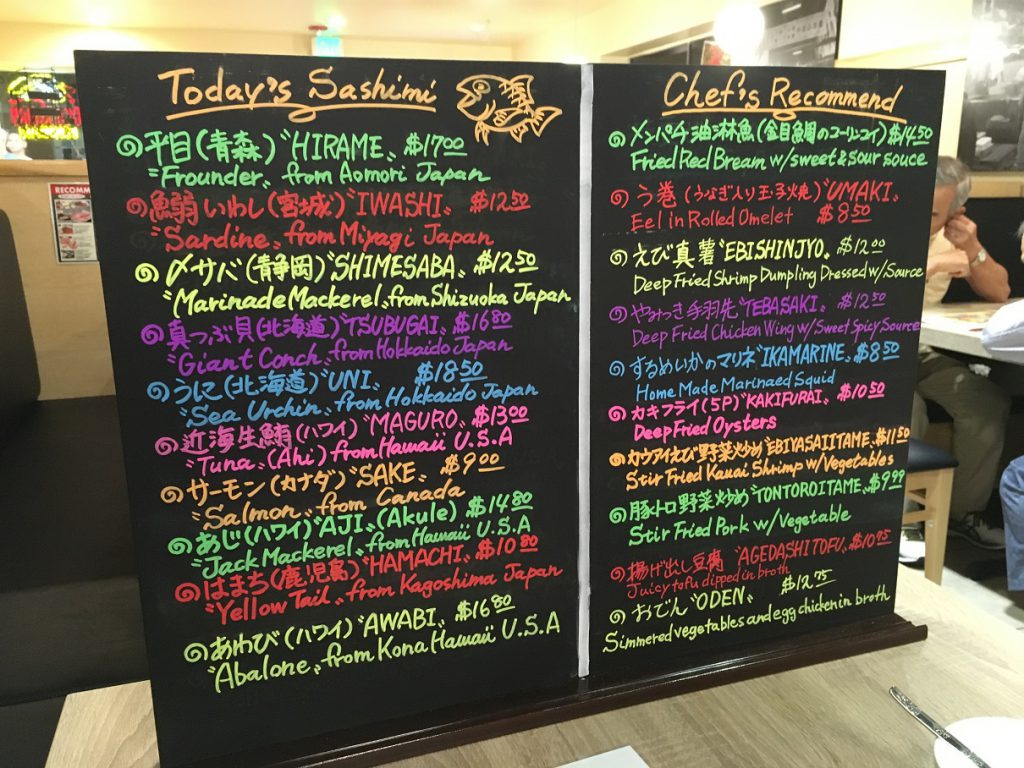 Today's Sashimi
平目(青森)"HIRAME" $17.00
"Frounder" from Aomori Japan
鰯いわし(宮城)"IWASHI" $12.50
"Sardine" from Miyagi Japan
〆サバ(静岡)"SHIMESABA" $12.50
"Marinade Mackerel" from Shizuoka Japan
真つぶ貝(北海道)"TSUBUGAI" $16.80
"Giant Conch" from Hokkaido Japan
うに(北海道)"UNI" $18.50
"Sea Urchin" from Hokkaido Japan
近海生鮪(ハワイ)"MAGURO" $13.00
"Tuna" (Ahi) from Hawaii U.S.A
サーモン(カナダ)"SAKE" $9.00
"Salmon" from Canada
あじ(ハワイ)"AJI" (Akule) $14.80
"Jack Mackerel" from Hawaii U.S.A
はまち(鹿児島)"HAMACHI" $10.80
"Yellow Tail" from Kagoshima Japan
あわび(ハワイ)"AWABI" $16.80
"Abalone" from Kona Hawaii U.S.A
Chef's Recommend
メンパチ油淋魚(金目鯛のユーリンユイ) $14.50
Fried Red Bream w/sweet & sour souce
う巻(うなぎ入り玉子焼)"UMAKI"
Eel in Rolled Omelet $8.50
えび真薯"EBISHINJYO" $12.00
Deep Fried Shrimp Dumpling Dressed w/Source
やみつき手羽先"TEBASAKI" $12.50
Deep Fried Chicken Wing w/Sweet Spicy Source
するめいかのマリネ"IKAMARINE" $8.50
Home Made Marinaed Squid
カキフライ(5P)"KAKIFURAI" $10.50
Deep Fried Oysters
カウアイえび野菜炒め"EBIYASAIITAME" $11.50
Stir Fried Kauai Shrimp w/Vegetables
豚トロ野菜炒め"TONTOROITAME" $9.99
Stir Fried Pork w/Vegetable
揚げ出し豆腐"AGEDASHITOFU" $10.95
Juicy tofu dipped in broth
おでん"ODEN" $12.75
Simmered vegetables and egg chicken in broth